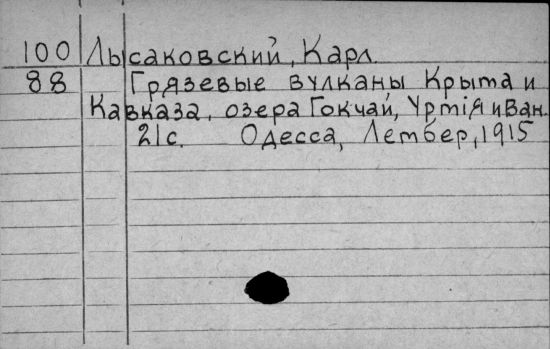 100 Лысаковский, Карл
88 Грязевые вулканы Крыма и
Кавказа, озера Гокчай, Уртія и Ван.
21с. Одесса, Лембер, 1915